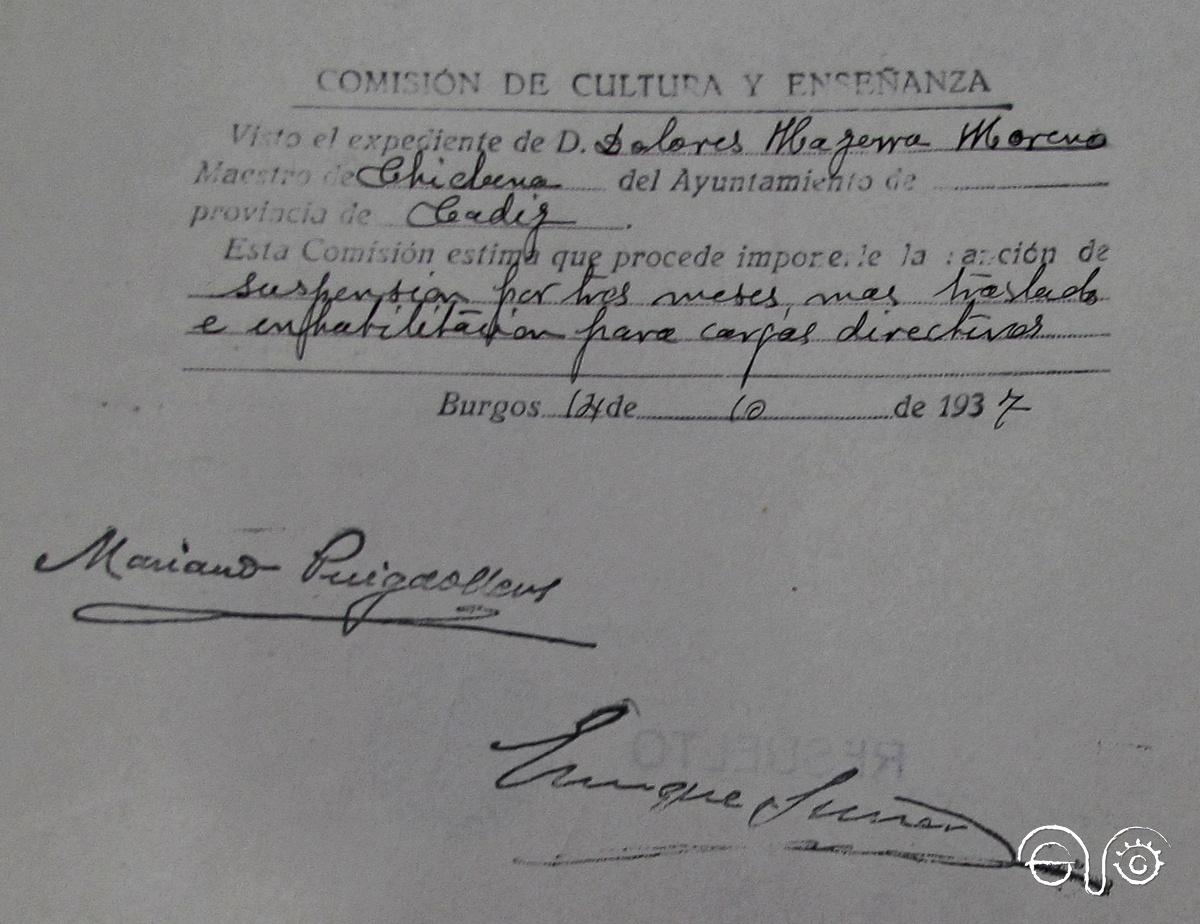 COMISIÓN DE CULTURA Y ENSEÑANZA
Visto el expediente de D. Dolores Mazerra Moreno
Maestro de Chiclana del Ayuntamiento de
provincia de Cadiz.
Esta Comisión estima que procede imponerle la sanción de
suspensión por tres meses, mas traslado
e inhabilitación para cargos directivos
Burgos 14 de 10 de 1937
Mariano Puigdollers
Enrique Suñer
RESUELTO